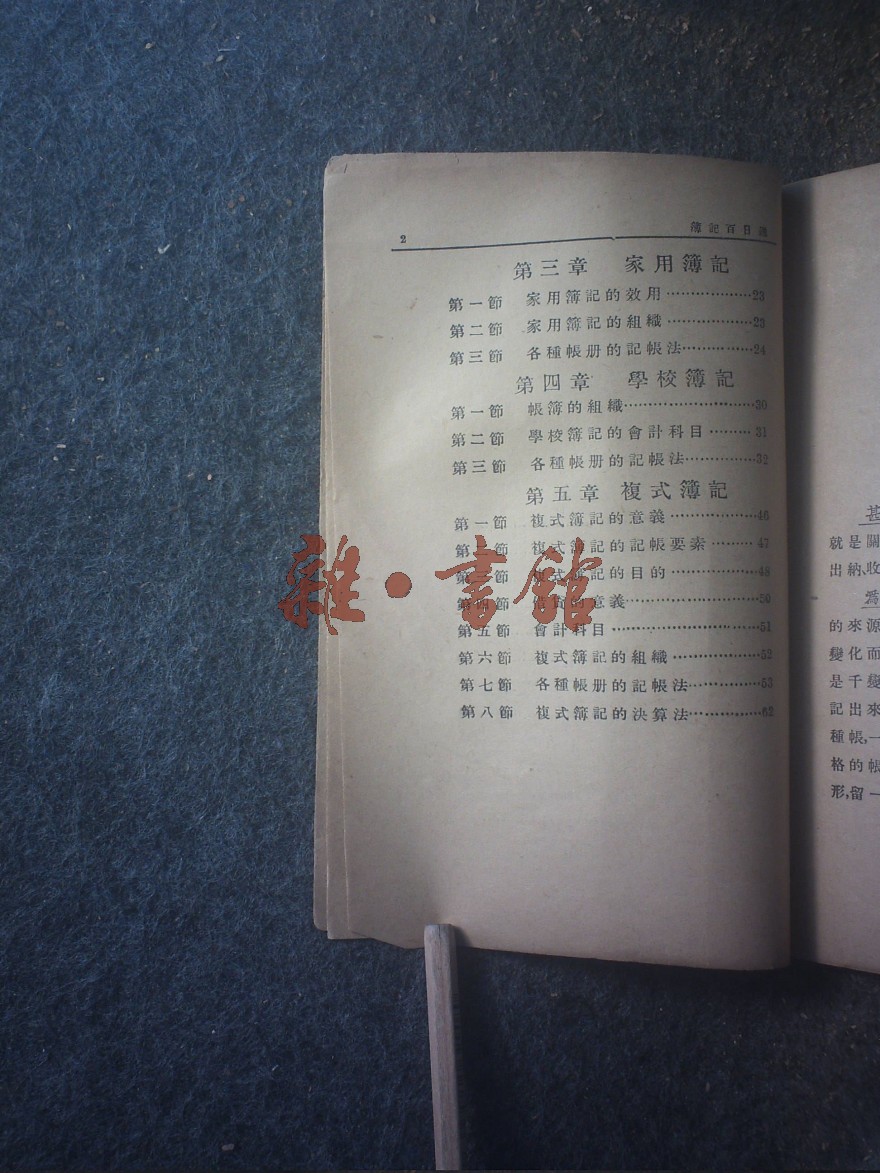 2 簿記百日通
第三章 家用簿記
第一節 家用簿記的效用………………23
第二節 家用簿記的組織………………23
第三節 各種帳册的記帳法……………24
第四章 學校簿記
第一節 帳簿的組織……………………30
第二節 學校簿記的會計科目………31
第三節 各種帳册的記帳法……………32
第五章 複式簿記
第一節 複式簿記的意義………………46
第二節 複式簿記的記帳要素………47
第三節 複式簿記的目的………………48
第四節 的意義………………………50
第五節 會計科目………………………51
第六節 複式簿記的組織………………52
第七節 各種帳册的記帳法……………53
第八節 複式簿記的決算法……………62
雜·書館
甚
就是關
出納、收
爲
的來源
變化而
是千變
記出來
種帳,一
格的帳
形,留一